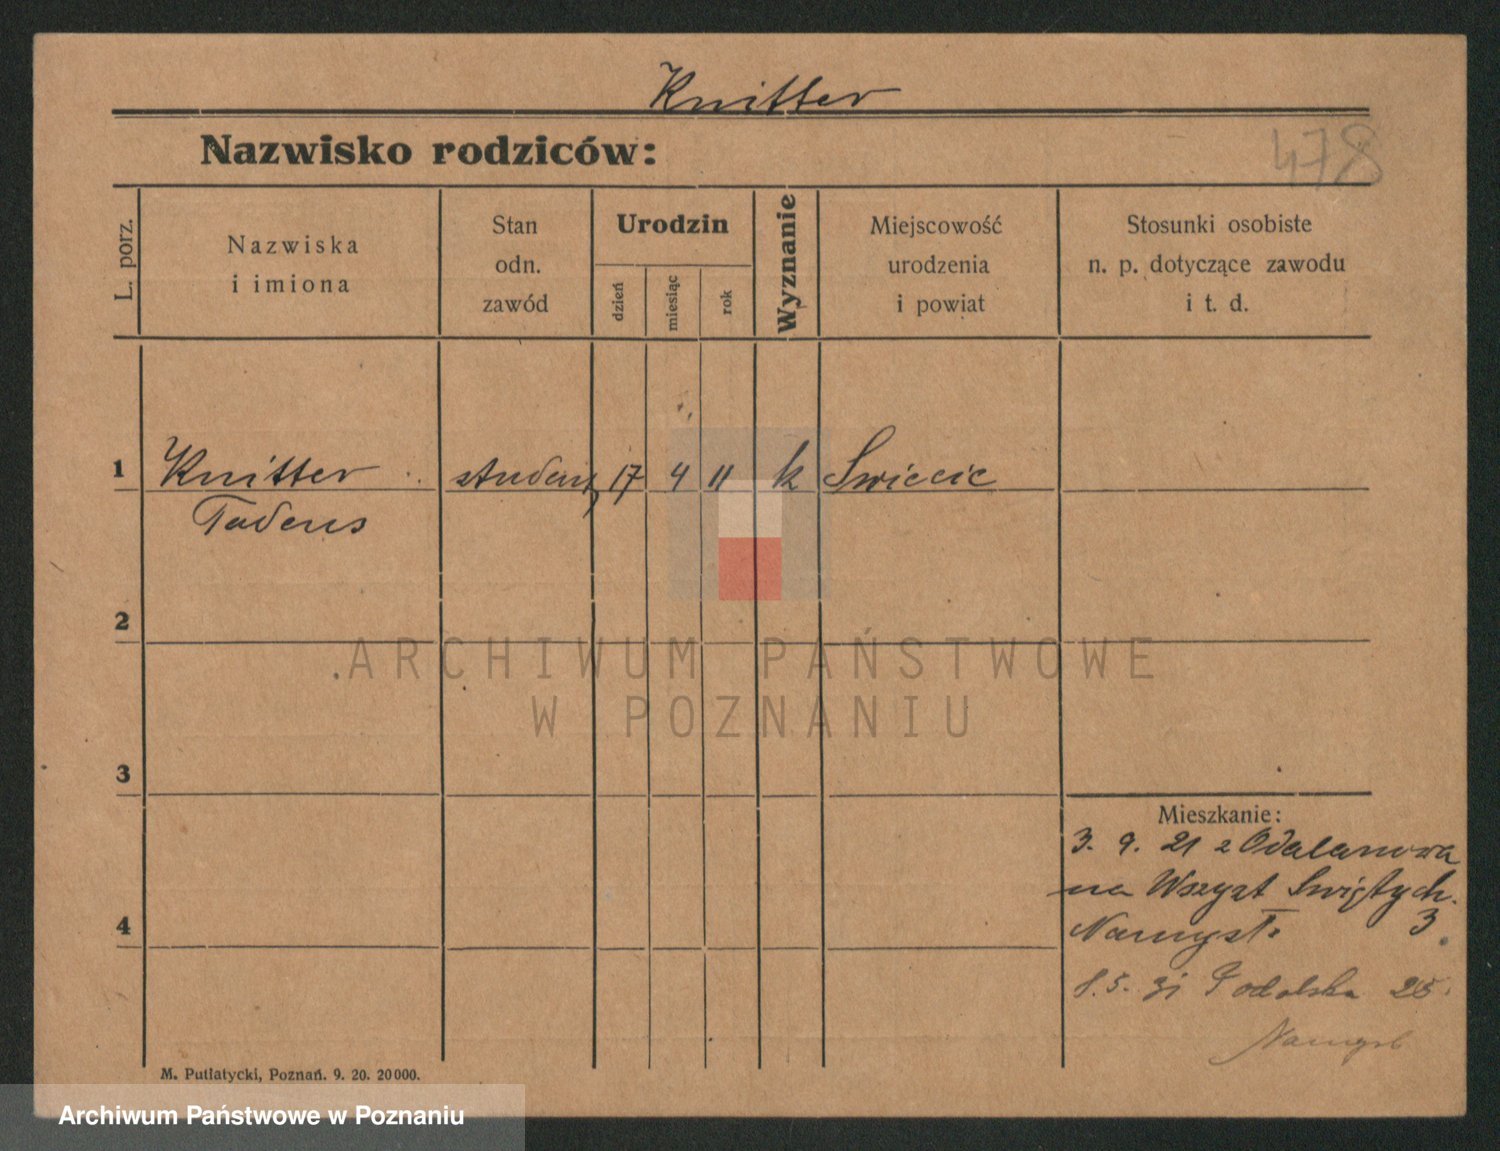 Knitter
Nazwisko rodziców:
478
L. porz.
Nazwiska
i imiona
Stan
odn.
zawód
Urodzin
dzień
miesiąc
rok
Wyznanie
Miejscowość
urodzenia
i powiat
Stosunki osobiste
n. p. dotyczące zawodu
i t. d.
1 Knitter student 17 4 11 k Swiecie
Tadeus
2
3
4
ARCHIWUM PAŃSTWOWE
W POZNANIU
Mieszkanie:
3. 9. 21 z Odalanowa
na Wszyst Swiętych
Namysł 3
31 Podolska 25
Namysł
M. Putiatycki, Poznań. 9. 20. 20000.
Archiwum Państwowe w Poznaniu